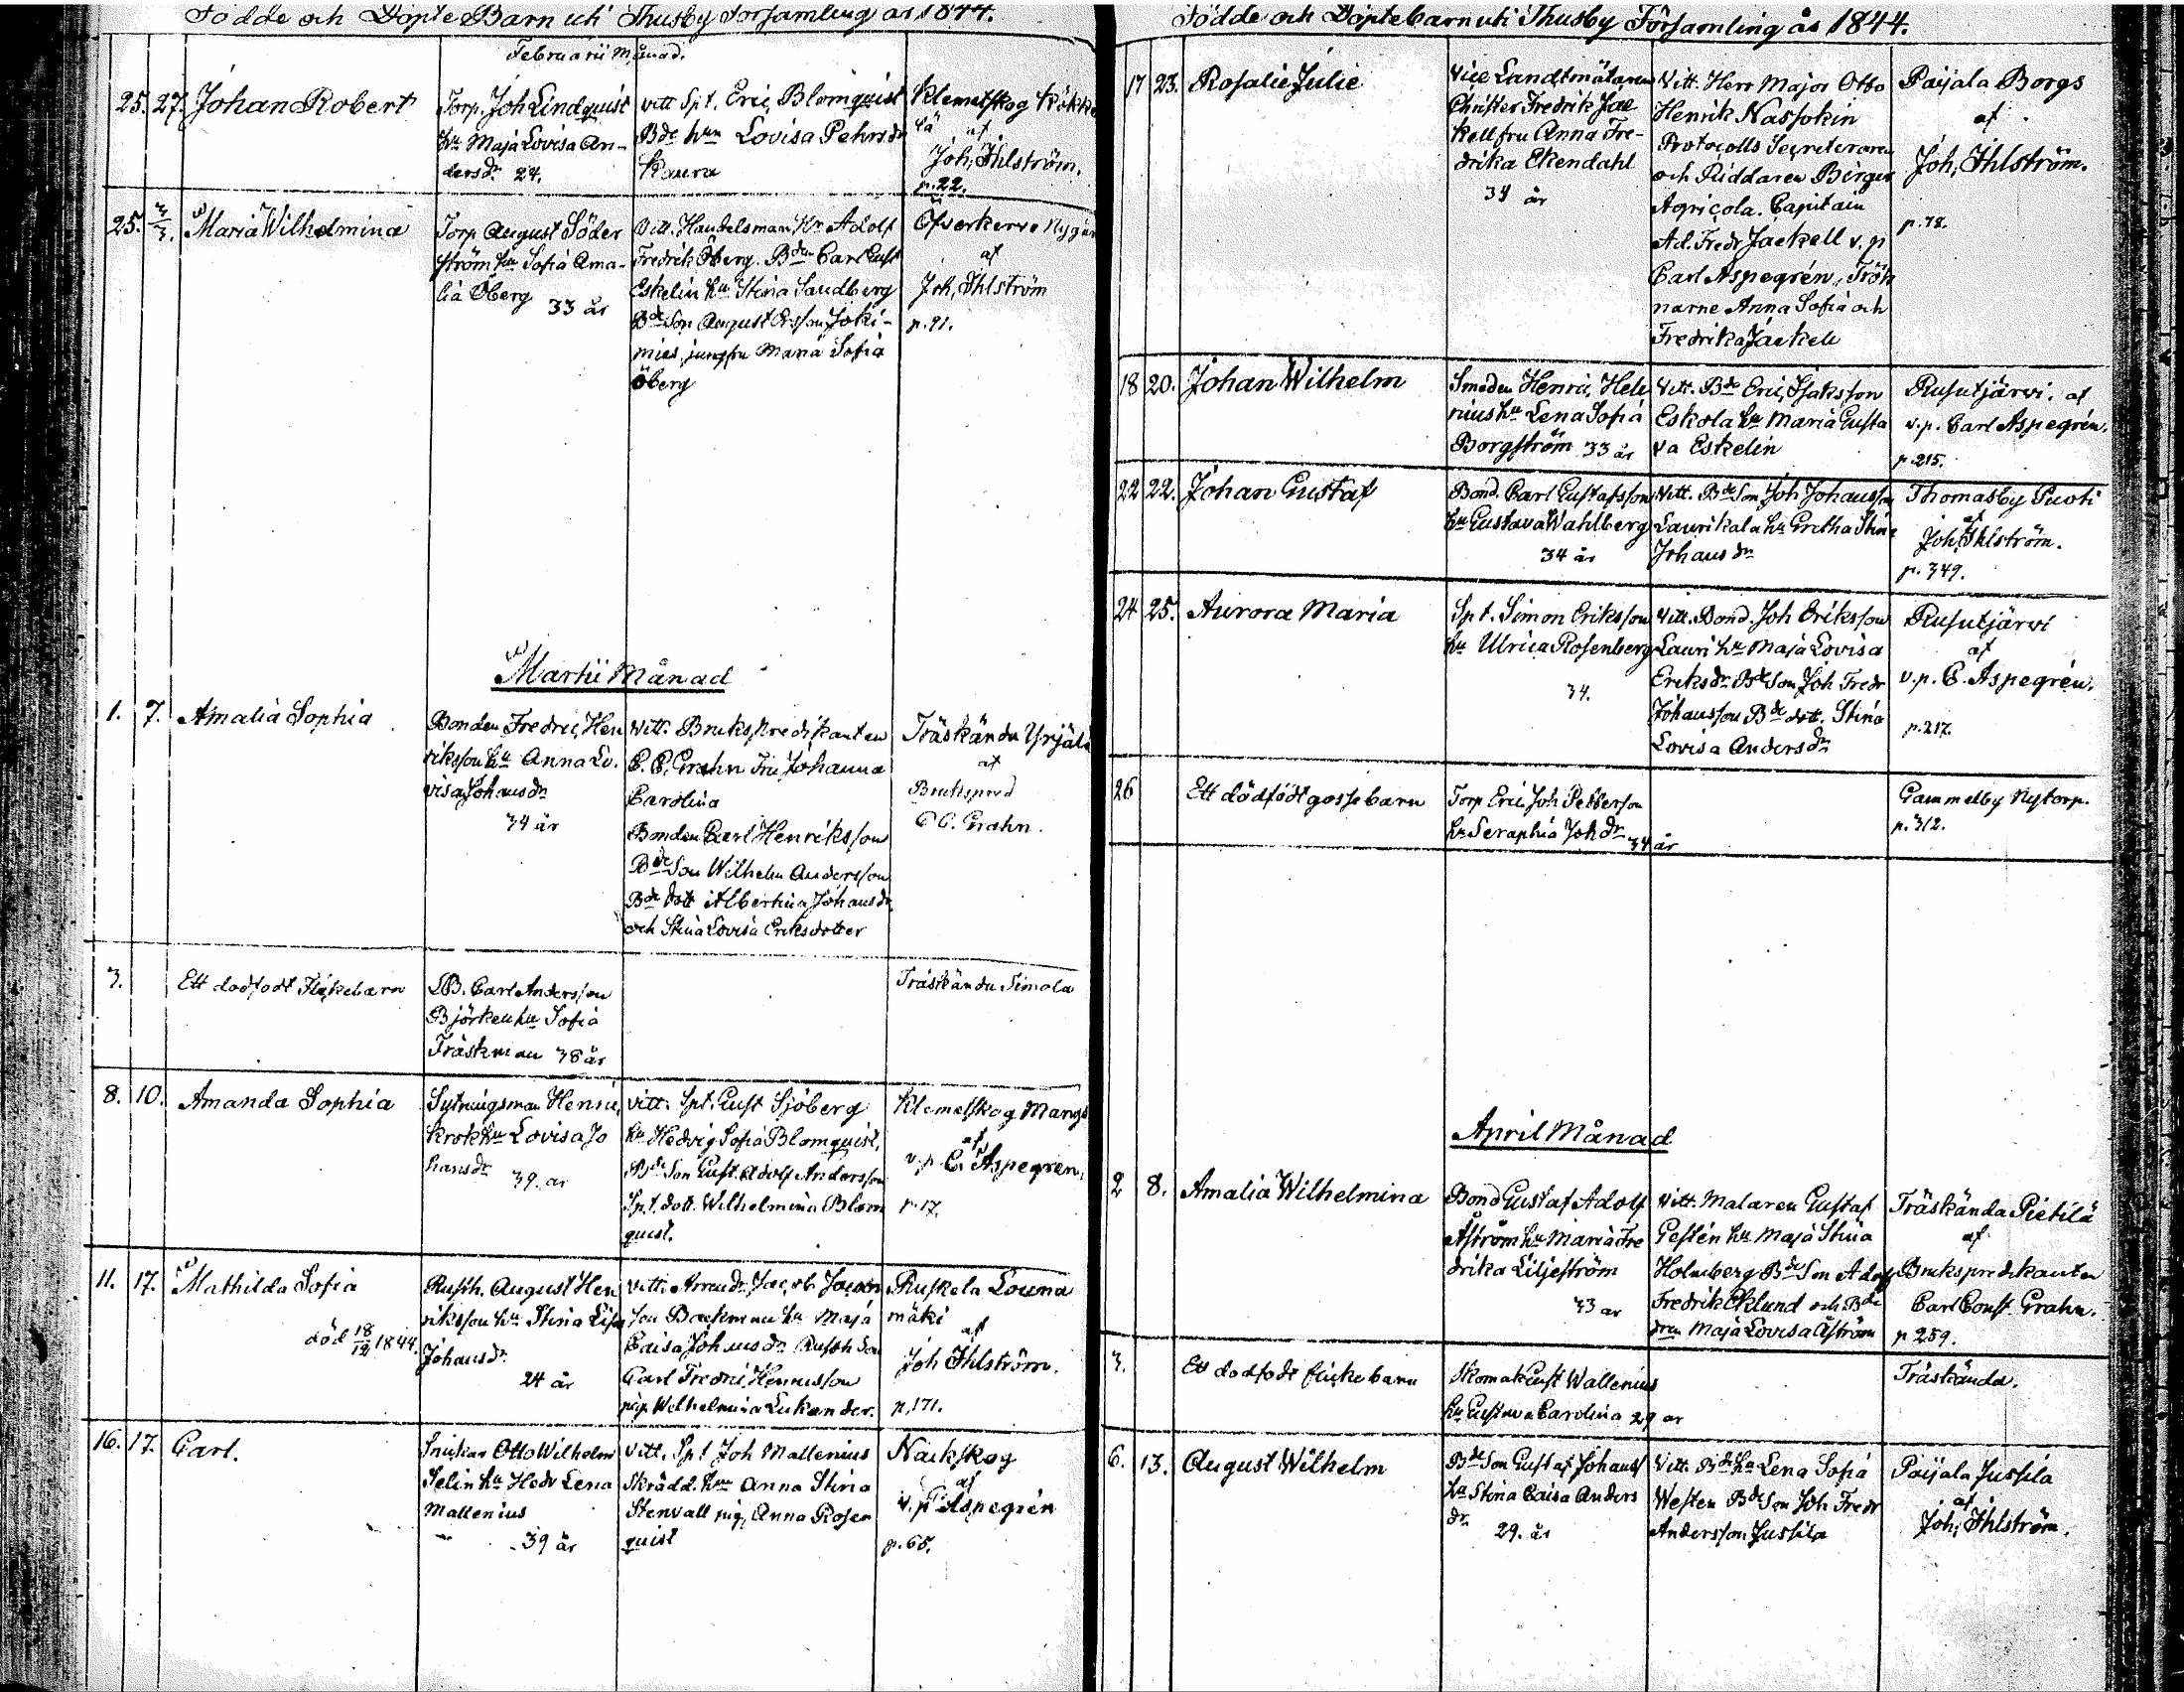 Födde och Döpte Barn uti Thusby Församling år 1844.
Februarii Månad.
25. 27. Johan Robert
Torp. Joh Lindquist
hu Maja Lovisa An-
dersdr. 24.
vitt Spt. Eric Blomquist
Bde hun Lovisa Pehrsdr
Kaura
Klemetskog Kökke
lä af
Joh, Ihlström.
p. 22.
25. 3/3. Maria Wilhelmina
Torp August Söder
ström hu Sofia Ama-
lia Öberg 33 år
Vitt. Handelsman Hr Adolf
Fredrik Öberg. Bden Carl Gust
Eskelin hu Stina Sandberg
Bde Son August Ersson Joki-
mies, jungfru Maria Sofia
Öberg
Ofverkervo Nygår
af
Joh, Ihlström
p. 91.
Martii Månad
1. 7. Amalia Sophia
Bonden Fredric Hen
riksson hu Anna Lo.
visa Johansdr
34 år
Vitt. Brukspredikanten
C. C. Grahn Fru Johanna
Carolina
Bonden Carl Henriksson
Bde Son Wilhelm Andersson
Bde dott Albertina Johansdr.
och Stina Lovisa Eriksdotter
Träskända Yrjälä
af
Brukspred
C C. Grahn.
3. Ett dödfödt Flickebarn
LB. Carl Andersson
Björken hu Sofia
Träskman 38 år
Träskända Simola
8. 10. Amanda Sophia
Sytningsman Henric
Krok hu Lovisa Jo
hansdr 39. år
Vitt. Spt. Gust Sjöberg
hu Hedvig Sofia Blomquist,
Bde Son Gust. Adolf Andersson
Spt. dott. Wilhelmina Blom
quist.
Klemetskog Mangs
af
v. p. C. Aspegren.
p. 17.
11. 17. Mathilda Sofia
död 18/12 1844.
Rusth. August Hen
riksson hu Stina Lisa
Johansdr.
24 år
Vitt. Arrendr Jacob Jacobs
son Backman hu Maja
Caisa Johansdr Rusth Son
Carl Fredric Henricsson
pig. Wilhelmina Lukander.
Ruskela Louna
mäki
af
Joh Ihlström.
p. 171.
16. 17. Carl.
Snickar Otto Wilhelm
Selin hu Hedv Lena
Mallenius
39 år
Vitt, Spt Joh Mallenius
Skrädd. hu Anna Stina
Stenvall pig, Anna Rosen
quist
Näckskog
af
v. p. Aspegrén
p. 65.
Födde och Döpte barn uti Thusby Församling år 1844.
17 23. Rosalie Julie
Vice Landtmätaren
Christer Fredrik Jae
kell fru Anna Fre-
drika Ekendahl
34 år
Vitt. Herr Major Otto
Henrik Nassokin
Protocolls Secreteraren
och Riddaren Birger
Agricola. Capitain
Ad. Fredr Jaekell v. p
Carl Aspegrén, Frök
narne Anna Sofia och
Fredrika Jaekell
Paijala Borgs
af
Joh, Ihlström.
p. 78.
18 20. Johan Wilhelm
Smeden Henric Hele
nius hu Lena Sofia
Borgström 33 år
Vitt. Bde Eric Isaksson
Eskola hu Maria Gusta
va Eskelin
Rusutjärvi. af
v. p. Carl Aspegrén.
p. 215.
22 22. Johan Gustaf
Bond. Carl Gustafsson
hu Gustava Wahlberg
34 år
Vitt. Bde Son Joh Johansson
Laurikala hu Gretha Stina
Johansdr
Thomasby Puoti
af
Joh, Ihlström.
p. 349.
24 25. Aurora Maria
Spt. Simon Eriksson
hu Ulrica Rosenberg
34.
Vitt. Bond. Joh Eriksson
Lauri hu Maja Lovisa
Eriksdr. Bde Son Joh Fredr
Johansson Bde dott. Stina
Lovisa Andersdr
Rusutjärvi
af
v. p. C. Aspegrén.
p. 217.
26 Ett dödfödt gossebarn
Torp Eric Joh Petterson
hu Seraphia Johdr 34 år
Gammelby Nytorp.
p. 312.
April Månad
2 8. Amalia Wilhelmina
Bond Gustaf Adolf
Åström hu Maria Fre
drika Liljeström
33 år
Vitt. Målaren Gustaf
Gestén hu Maja Stina
Holmberg Bde Son Adolf
Fredrik Eklund och Bde
dren Maja Lovisa Åström
Träskända Pietilä
af
Brukspredikanten
Carl Const. Grahn.
p 259.
3. Ett dödfödt flickebarn
Skomak Gust Wallenius
hu Gustava Carolina 29 år
Träskända.
6. 13. August Wilhelm
Bde Son Gustaf Johans
hu Stina Caisa Anders
dr. 29. år
Vitt. Bde hu Lena Sofia
Westen Bde Son Joh Fredr
Andersson Jussila
Paijala Jussila
af
Joh, Ihlström.